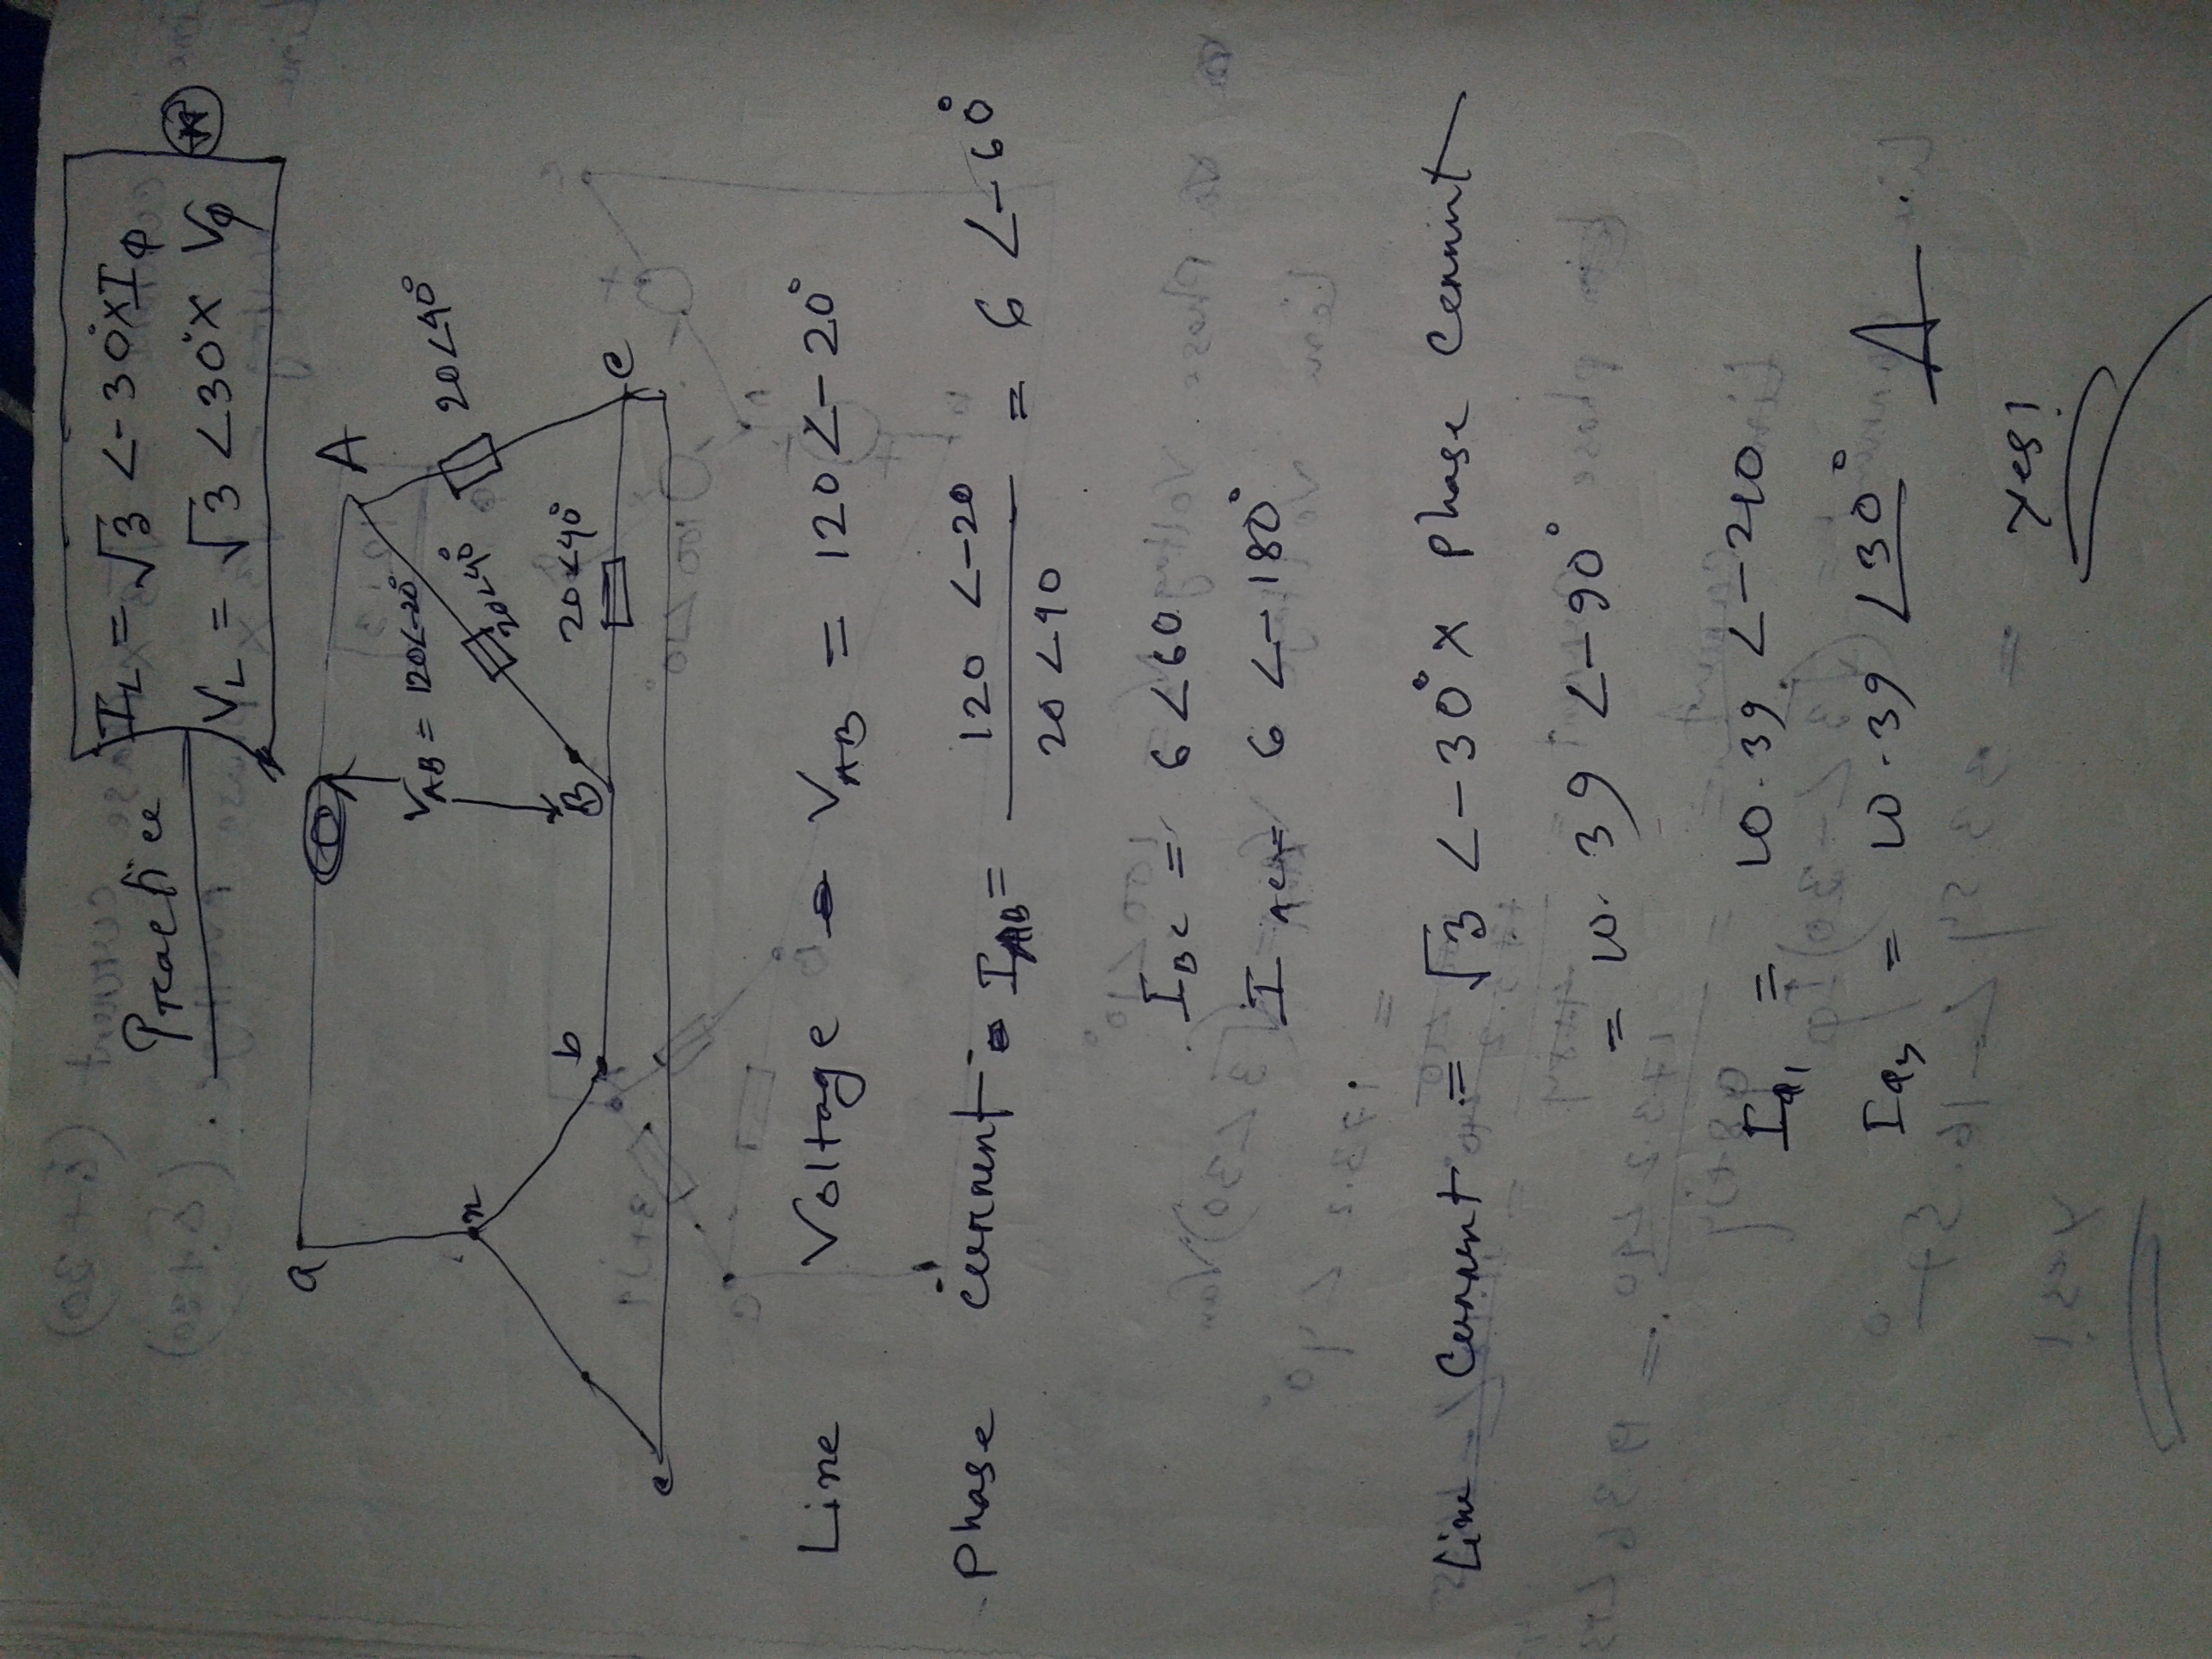 Practice
I_L = √3 ∠-30° × I_φ
V_L = √3 ∠30° × V_φ
a
A
V_AB = 120∠-20°
20∠40°
20∠40°
n
b
B
20∠40°
c
c
Line Voltage V_AB = 120∠-20°
Phase current I_AB = 120 ∠-20 / 20 ∠40 = 6 ∠-60°
I_BC = 6 ∠60
I_AC = 6 ∠-180°
Line Current = √3 ∠-30° × Phase Current
= 10.39 ∠-90°
= 10.39 ∠-210
= 10.39 ∠30° A
Yes!